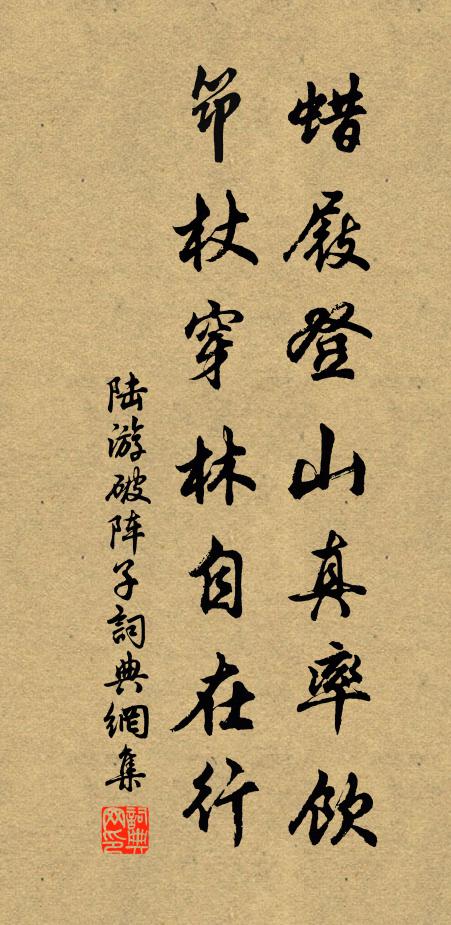 蜡屐登山真率饮
筇杖穿林自在行
陆游破阵子詞典網集
詞典网印